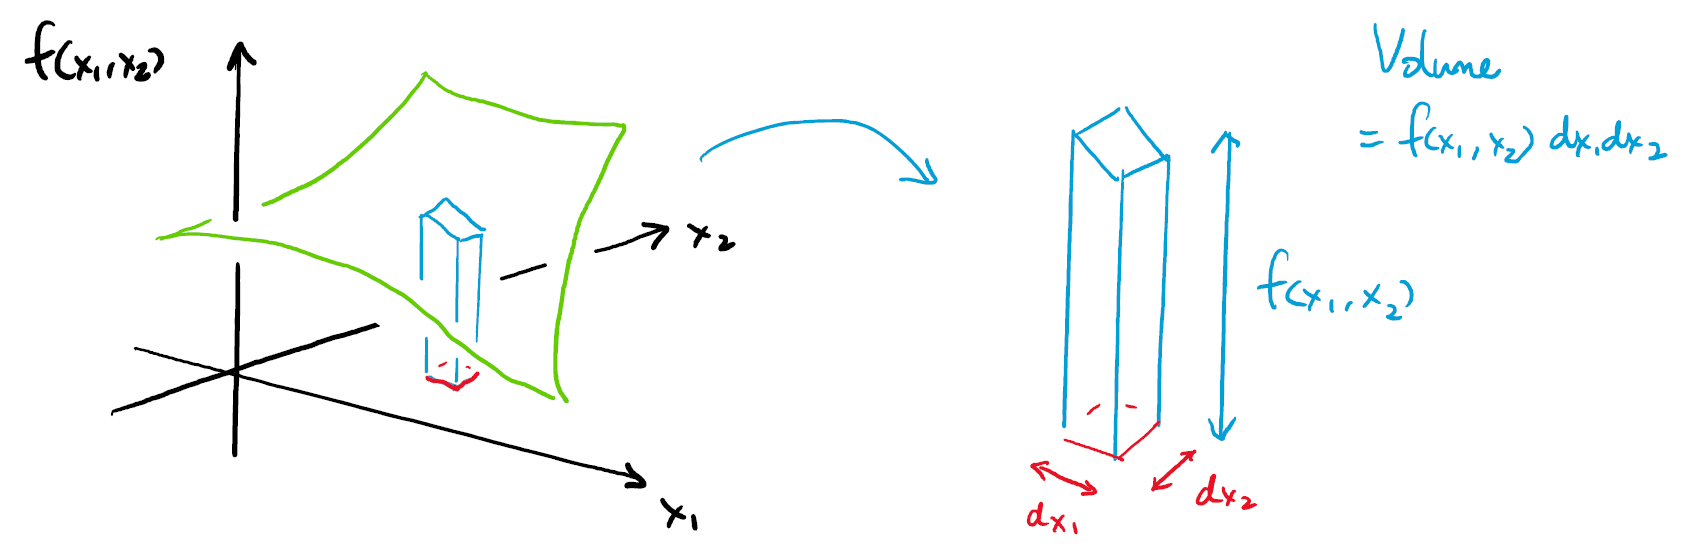 f(x₁, x₂)
x₂
x₁
Volume
= f(x₁, x₂) dx₁dx₂
f(x₁, x₂)
dx₁
dx₂